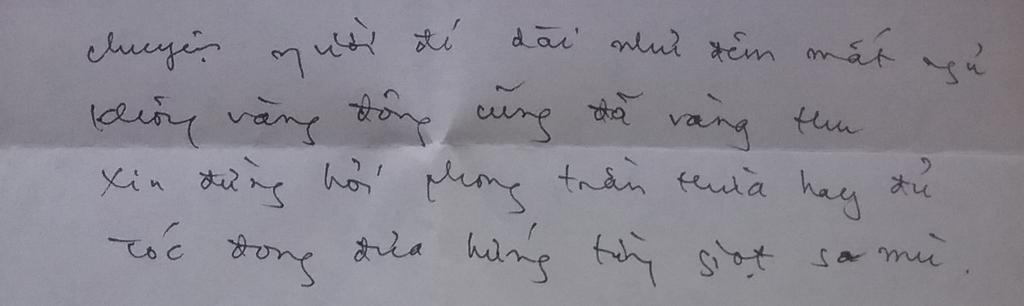 chuyện người đi dài như đêm mất ngủ
không vàng đông cũng đã vàng thu
xin đừng hỏi phong trần thừa hay đủ
tóc đong đưa hứng từng giọt sa mù.